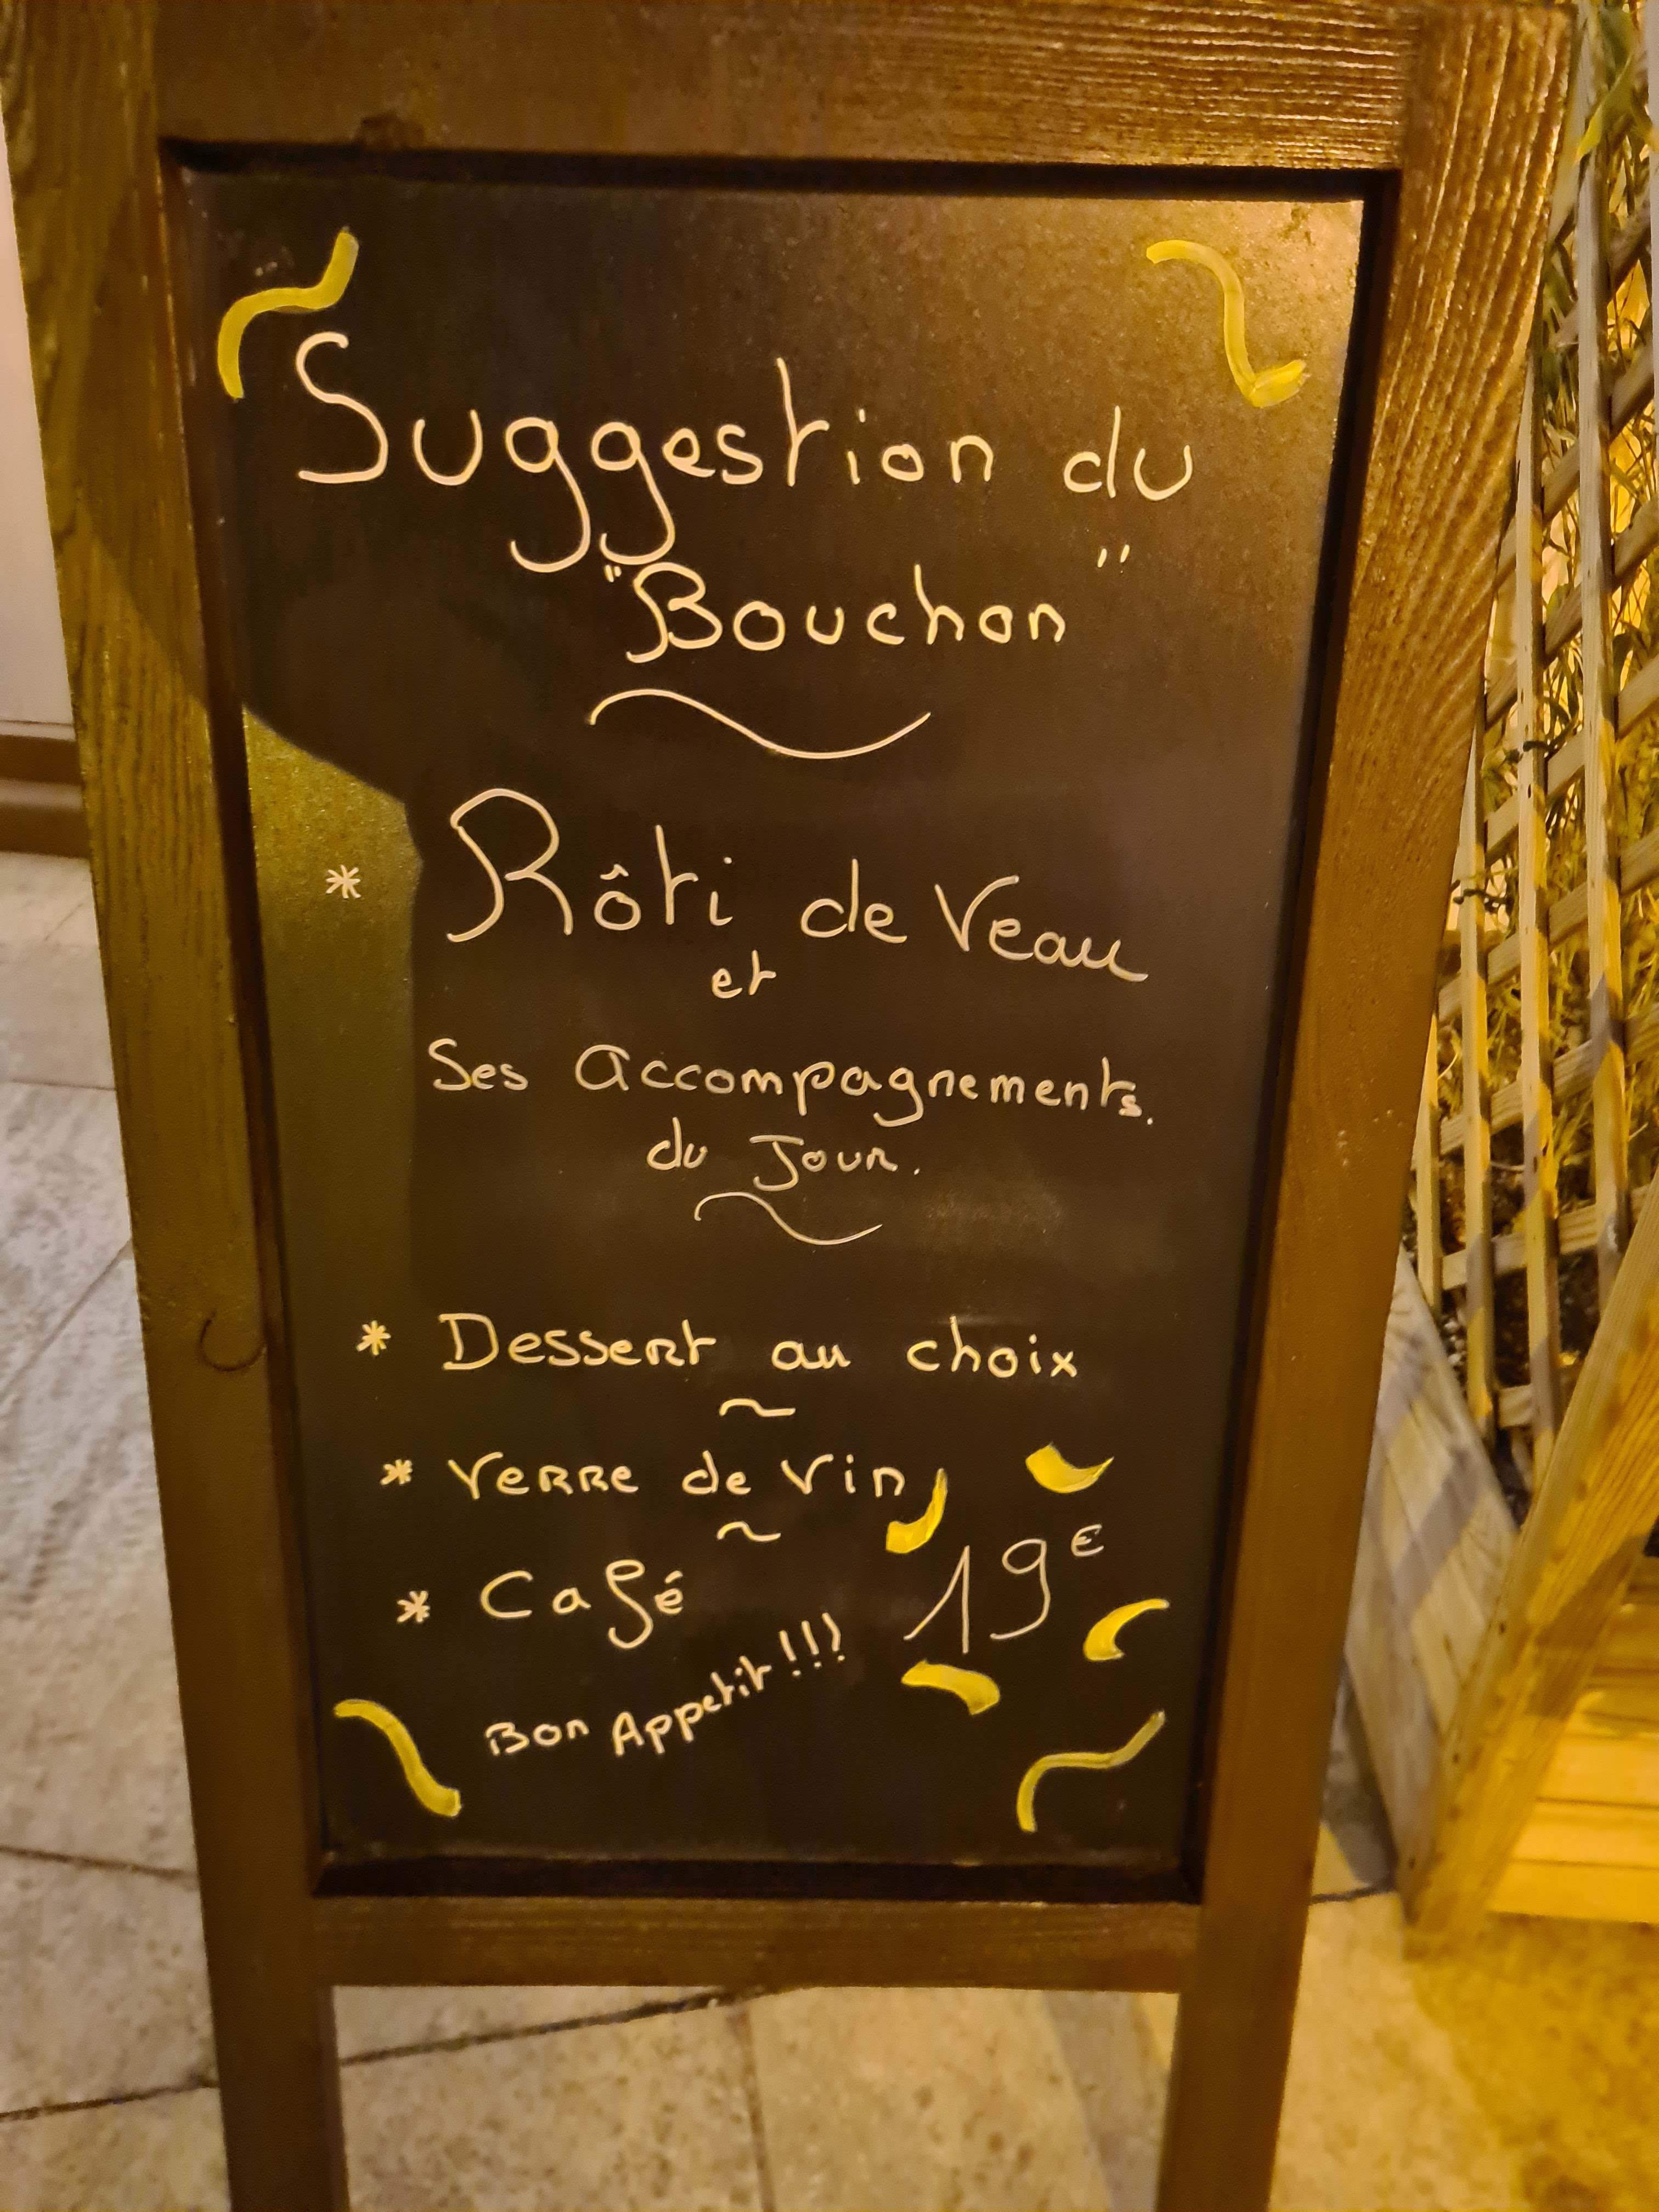 Suggestion du
"Bouchon"
* Rôti de Veau
et
Ses Accompagnements.
du Jour.
* Dessert au choix
~
* Verre de Vin
~
* Café
19€
Bon Appetit !!!